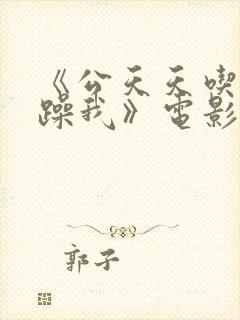 《公天天喫
躁我》電影
郭子